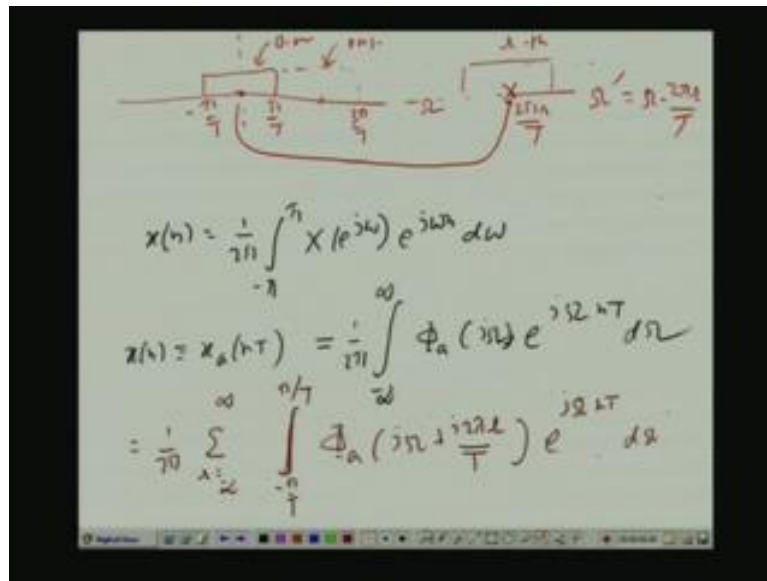 0-th r-th
-π/T π/T 3π/T Ω 2πr/T Ω' = Ω - 2πr/T
x(n) = 1/2π ∫_{-π}^{π} X(e^{jω}) e^{jωn} dω
x(n) = x_a(nT) = 1/2π ∫_{-∞}^{∞} Φ_a(jΩ) e^{jΩnT} dΩ
= 1/2π ∑_{r=-∞}^{∞} ∫_{-π/T}^{π/T} Φ_a(jΩ + j2πr/T) e^{jΩnT} dΩ